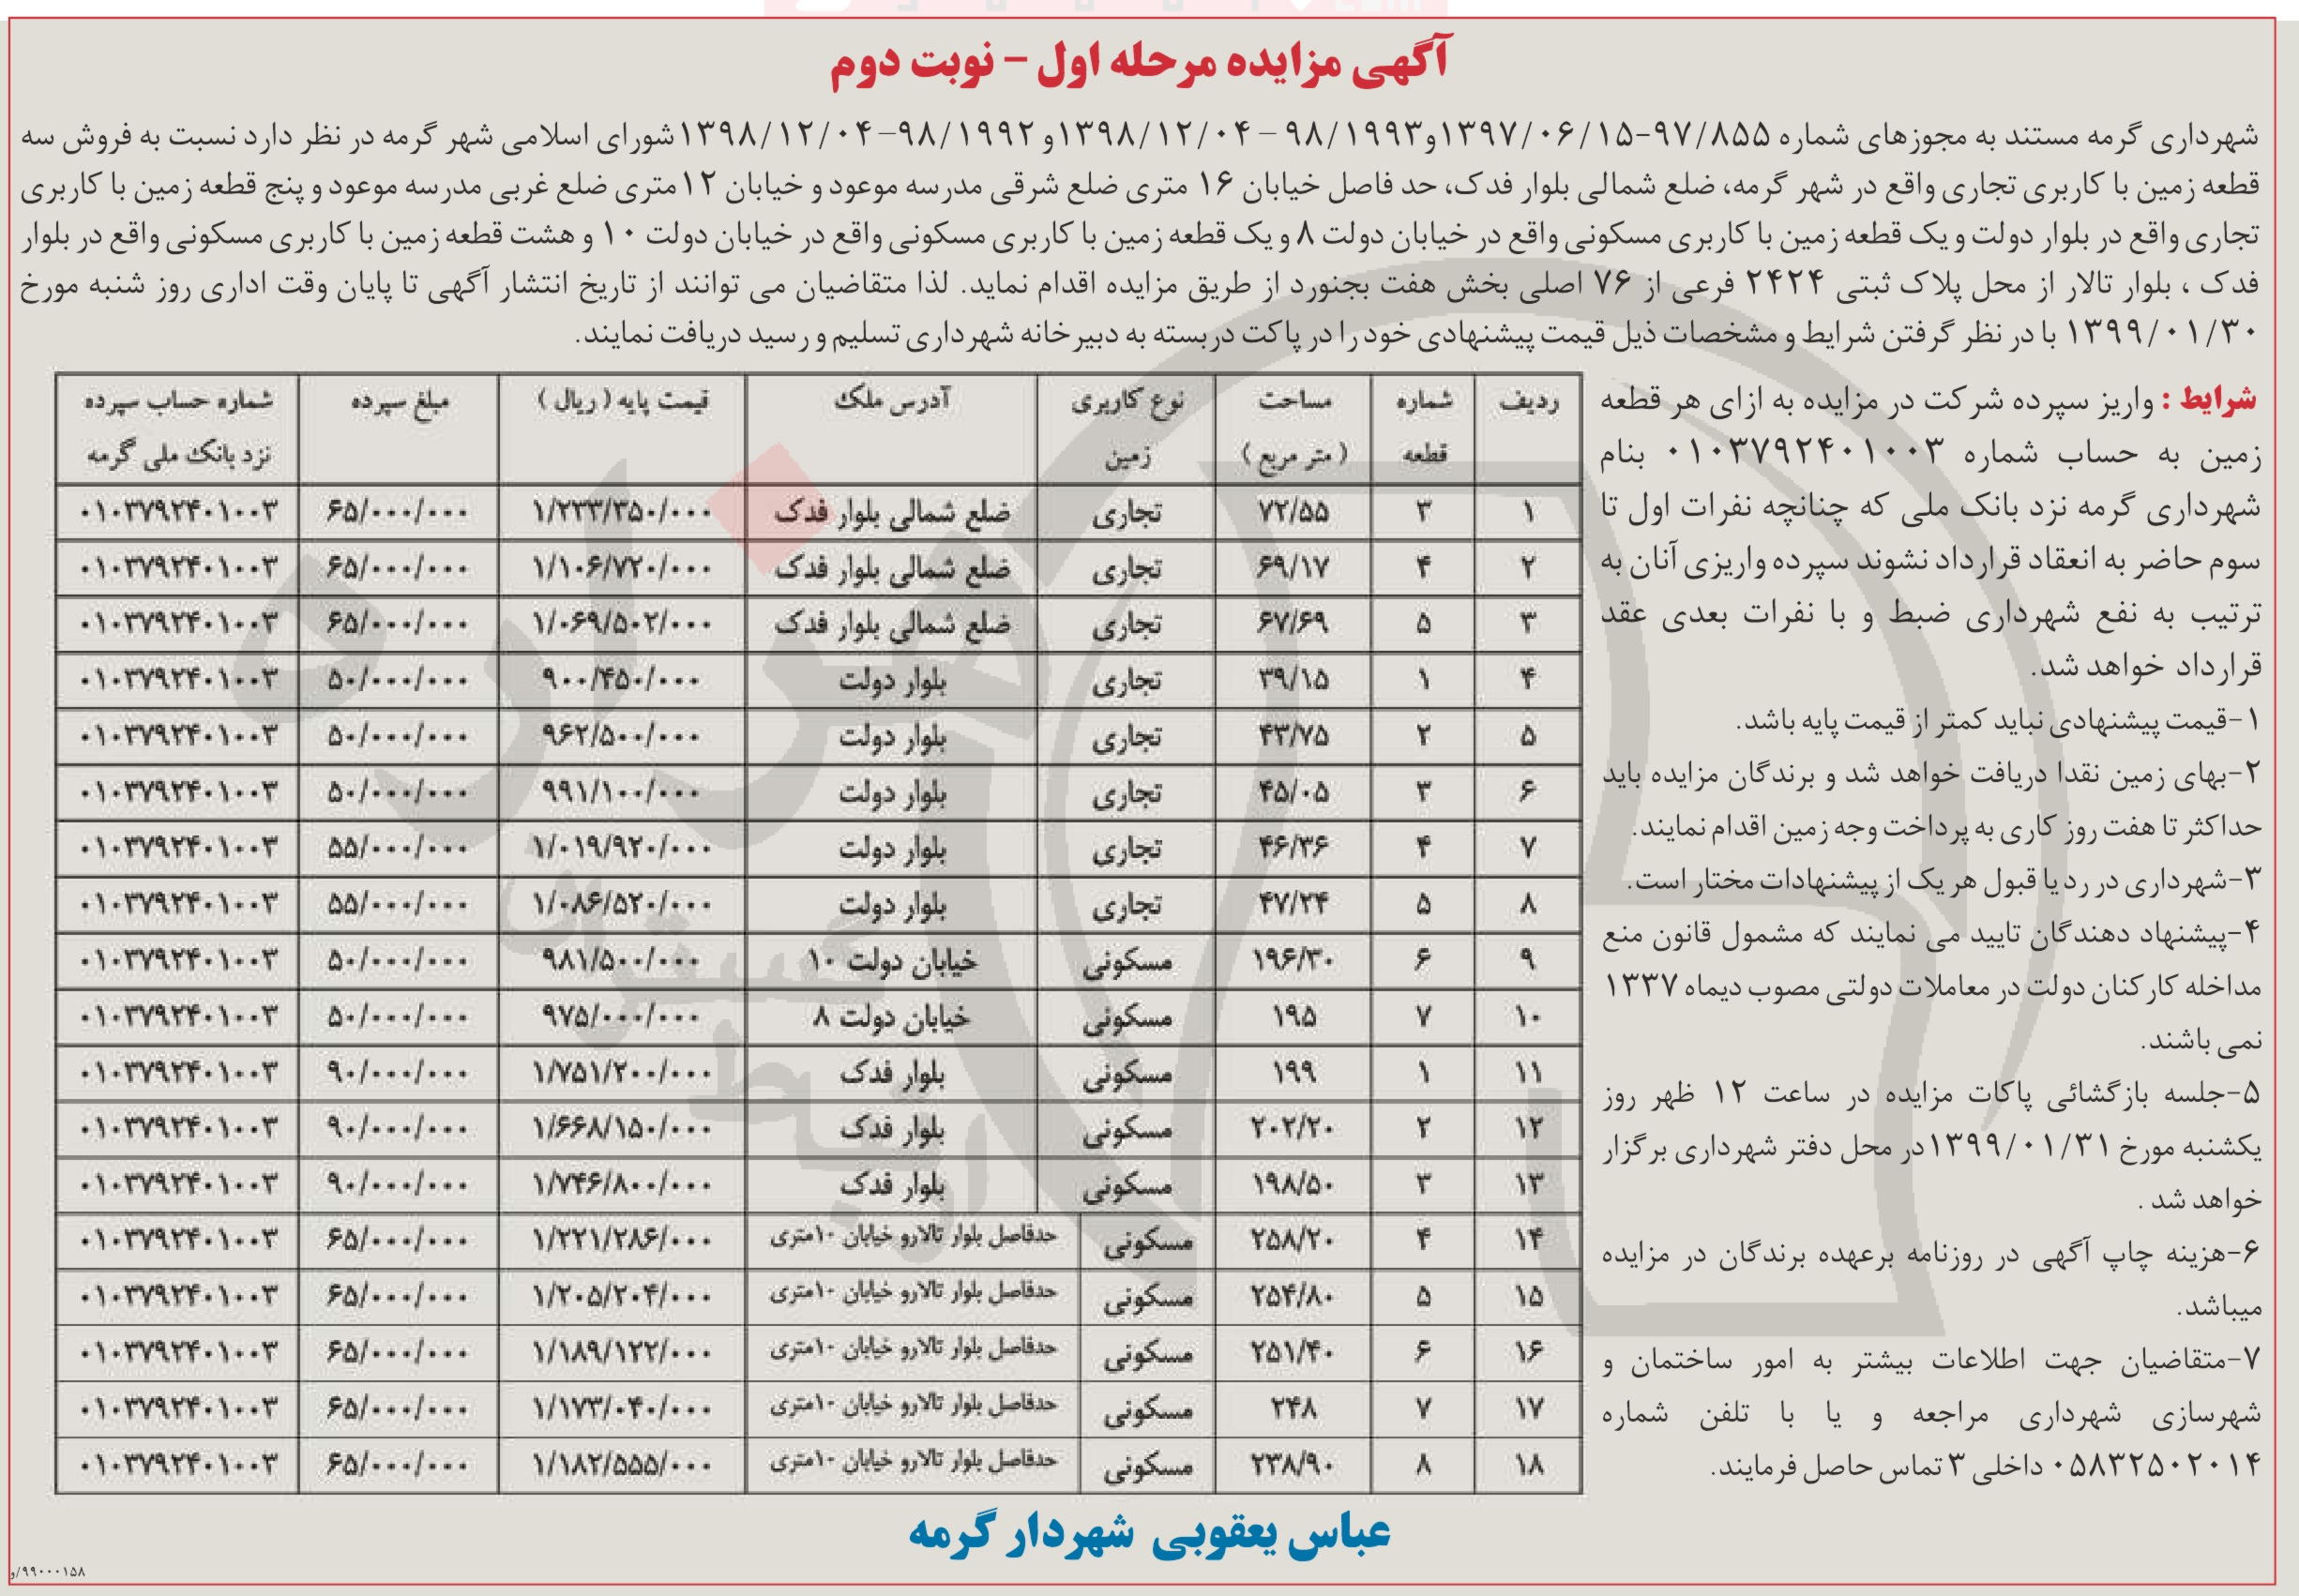 آگهی مزایده مرحله اول – نوبت دوم
شهرداری گرمه مستند به مجوزهای شماره ۹۷/۸۵۵-۱۳۹۷/۰۶/۱۵و۹۸/۱۹۹۳ – ۱۳۹۸/۱۲/۰۴و ۹۸/۱۹۹۲–۱۳۹۸/۱۲/۰۴شورای اسلامی شهر گرمه در نظر دارد نسبت به فروش سه
قطعه زمین با کاربری تجاری واقع در شهر گرمه، ضلع شمالی بلوار فدک، حد فاصل خیابان ۱۶ متری ضلع شرقی مدرسه موعود و خیابان ۱۲متری ضلع غربی مدرسه موعود و پنج قطعه زمین با کاربری
تجاری واقع در بلوار دولت و یک قطعه زمین با کاربری مسکونی واقع در خیابان دولت ۸ و یک قطعه زمین با کاربری مسکونی واقع در خیابان دولت ۱۰ و هشت قطعه زمین با کاربری مسکونی واقع در بلوار
فدک ، بلوار تالار از محل پلاک ثبتی ۲۴۲۴ فرعی از ۷۶ اصلی بخش هفت بجنورد از طریق مزایده اقدام نماید. لذا متقاضیان می توانند از تاریخ انتشار آگهی تا پایان وقت اداری روز شنبه مورخ
۱۳۹۹/۰۱/۳۰ با در نظر گرفتن شرایط و مشخصات ذیل قیمت پیشنهادی خود را در پاکت دربسته به دبیرخانه شهرداری تسلیم و رسید دریافت نمایند.
شرایط : واریز سپرده شرکت در مزایده به ازای هر قطعه
زمین به حساب شماره ۰۱۰۳۷۹۲۴۰۱۰۰۳ بنام
شهرداری گرمه نزد بانک ملی که چنانچه نفرات اول تا
سوم حاضر به انعقاد قرارداد نشوند سپرده واریزی آنان به
ترتیب به نفع شهرداری ضبط و با نفرات بعدی عقد
قرارداد خواهد شد.
۱-قیمت پیشنهادی نباید کمتر از قیمت پایه باشد.
۲-بهای زمین نقدا دریافت خواهد شد و برندگان مزایده باید
حداکثر تا هفت روز کاری به پرداخت وجه زمین اقدام نمایند.
۳-شهرداری در رد یا قبول هر یک از پیشنهادات مختار است.
۴-پیشنهاد دهندگان تایید می نمایند که مشمول قانون منع
مداخله کارکنان دولت در معاملات دولتی مصوب دیماه ۱۳۳۷
نمی باشند.
۵-جلسه بازگشائی پاکات مزایده در ساعت ۱۲ ظهر روز
یکشنبه مورخ ۱۳۹۹/۰۱/۳۱در محل دفتر شهرداری برگزار
خواهد شد .
۶-هزینه چاپ آگهی در روزنامه برعهده برندگان در مزایده
میباشد.
۷-متقاضیان جهت اطلاعات بیشتر به امور ساختمان و
شهرسازی شهرداری مراجعه و یا با تلفن شماره
۰۵۸۳۲۵۰۲۰۱۴ داخلی ۳ تماس حاصل فرمایند.
ردیف شماره قطعه مساحت (متر مربع) نوع کاربری زمین آدرس ملک قیمت پایه (ریال) مبلغ سپرده شماره حساب سپرده نزد بانک ملی گرمه
۱ ۳ ۷۲/۵۵ تجاری ضلع شمالی بلوار فدک ۱/۲۳۳/۳۵۰/۰۰۰ ۶۵/۰۰۰/۰۰۰ ۰۱۰۳۷۹۲۴۰۱۰۰۳
۲ ۴ ۶۹/۱۷ تجاری ضلع شمالی بلوار فدک ۱/۱۰۶/۷۲۰/۰۰۰ ۶۵/۰۰۰/۰۰۰ ۰۱۰۳۷۹۲۴۰۱۰۰۳
۳ ۵ ۶۷/۶۹ تجاری ضلع شمالی بلوار فدک ۱/۰۶۹/۵۰۲/۰۰۰ ۶۵/۰۰۰/۰۰۰ ۰۱۰۳۷۹۲۴۰۱۰۰۳
۴ ۱ ۳۹/۱۵ تجاری بلوار دولت ۹۰۰/۴۵۰/۰۰۰ ۵۰/۰۰۰/۰۰۰ ۰۱۰۳۷۹۲۴۰۱۰۰۳
۵ ۲ ۴۳/۷۵ تجاری بلوار دولت ۹۶۲/۵۰۰/۰۰۰ ۵۰/۰۰۰/۰۰۰ ۰۱۰۳۷۹۲۴۰۱۰۰۳
۶ ۳ ۴۵/۰۵ تجاری بلوار دولت ۹۹۱/۱۰۰/۰۰۰ ۵۰/۰۰۰/۰۰۰ ۰۱۰۳۷۹۲۴۰۱۰۰۳
۷ ۴ ۴۶/۳۶ تجاری بلوار دولت ۱/۰۱۹/۹۲۰/۰۰۰ ۵۵/۰۰۰/۰۰۰ ۰۱۰۳۷۹۲۴۰۱۰۰۳
۸ ۵ ۴۷/۲۴ تجاری بلوار دولت ۱/۰۸۶/۵۲۰/۰۰۰ ۵۵/۰۰۰/۰۰۰ ۰۱۰۳۷۹۲۴۰۱۰۰۳
۹ ۶ ۱۹۶/۳۰ مسکونی خیابان دولت ۱۰ ۹۸۱/۵۰۰/۰۰۰ ۵۰/۰۰۰/۰۰۰ ۰۱۰۳۷۹۲۴۰۱۰۰۳
۱۰ ۷ ۱۹۵ مسکونی خیابان دولت ۸ ۹۷۵/۰۰۰/۰۰۰ ۵۰/۰۰۰/۰۰۰ ۰۱۰۳۷۹۲۴۰۱۰۰۳
۱۱ ۱ ۱۹۹ مسکونی بلوار فدک ۱/۷۵۱/۲۰۰/۰۰۰ ۹۰/۰۰۰/۰۰۰ ۰۱۰۳۷۹۲۴۰۱۰۰۳
۱۲ ۲ ۲۰۲/۲۰ مسکونی بلوار فدک ۱/۶۶۸/۱۵۰/۰۰۰ ۹۰/۰۰۰/۰۰۰ ۰۱۰۳۷۹۲۴۰۱۰۰۳
۱۳ ۳ ۱۹۸/۵۰ مسکونی بلوار فدک ۱/۷۴۶/۸۰۰/۰۰۰ ۹۰/۰۰۰/۰۰۰ ۰۱۰۳۷۹۲۴۰۱۰۰۳
۱۴ ۴ ۲۵۸/۲۰ مسکونی حدفاصل بلوار تالارو خیابان ۱۰متری ۱/۲۲۱/۲۸۶/۰۰۰ ۶۵/۰۰۰/۰۰۰ ۰۱۰۳۷۹۲۴۰۱۰۰۳
۱۵ ۵ ۲۵۴/۸۰ مسکونی حدفاصل بلوار تالارو خیابان ۱۰متری ۱/۲۰۵/۲۰۴/۰۰۰ ۶۵/۰۰۰/۰۰۰ ۰۱۰۳۷۹۲۴۰۱۰۰۳
۱۶ ۶ ۲۵۱/۴۰ مسکونی حدفاصل بلوار تالارو خیابان ۱۰متری ۱/۱۸۹/۱۲۲/۰۰۰ ۶۵/۰۰۰/۰۰۰ ۰۱۰۳۷۹۲۴۰۱۰۰۳
۱۷ ۷ ۲۴۸ مسکونی حدفاصل بلوار تالارو خیابان ۱۰متری ۱/۱۷۳/۰۴۰/۰۰۰ ۶۵/۰۰۰/۰۰۰ ۰۱۰۳۷۹۲۴۰۱۰۰۳
۱۸ ۸ ۲۳۸/۹۰ مسکونی حدفاصل بلوار تالارو خیابان ۱۰متری ۱/۱۸۲/۵۵۵/۰۰۰ ۶۵/۰۰۰/۰۰۰ ۰۱۰۳۷۹۲۴۰۱۰۰۳
عباس یعقوبی شهردار گرمه
۹۹۰۰۰۱۵۸/و